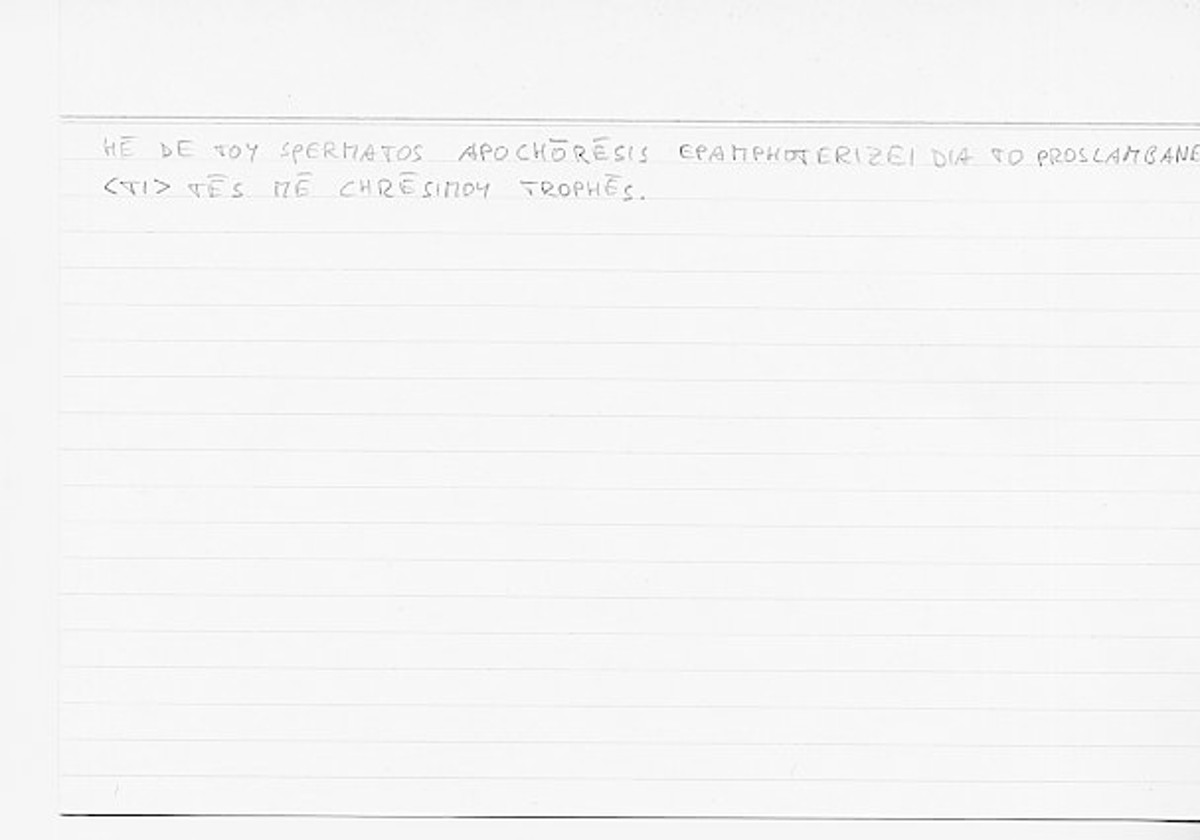 HĒ DE TOY SPERMATOS APOCHŌRĒSIS EPAMPHOTERIZEI DIA TO PROSLAMBANE
<TI> TĒS MĒ CHRĒSIMOY TROPHĒS.